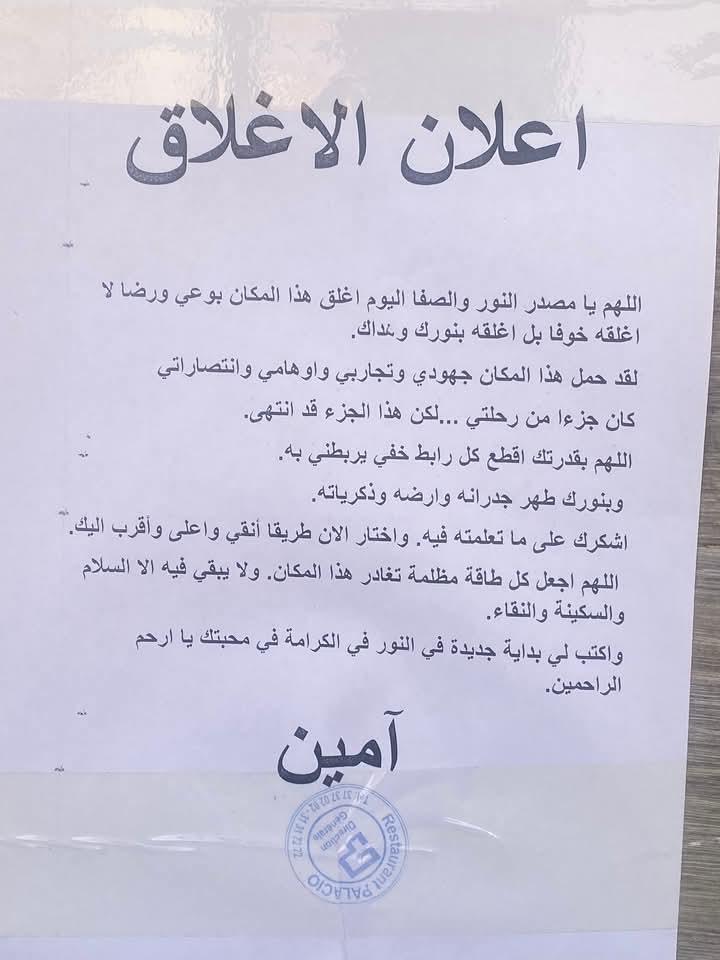 اعلان الاغلاق
اللهم يا مصدر النور والصفا اليوم اغلق هذا المكان بوعي ورضا لا
اغلقه خوفا بل اغلقه بنورك وهداك.
لقد حمل هذا المكان جهودي وتجاربي واوهامي وانتصاراتي
كان جزءا من رحلتي ...لكن هذا الجزء قد انتهى.
اللهم بقدرتك اقطع كل رابط خفي يربطني به.
وبنورك طهر جدرانه وارضه وذكرياته.
اشكرك على ما تعلمته فيه. واختار الان طريقا أنقي واعلى وأقرب اليك.
اللهم اجعل كل طاقة مظلمة تغادر هذا المكان. ولا يبقي فيه الا السلام
والسكينة والنقاء.
واكتب لي بداية جديدة في النور في الكرامة في محبتك يا ارحم
الراحمين.
آمين
Restaurant PALACIO
Direction
Générale